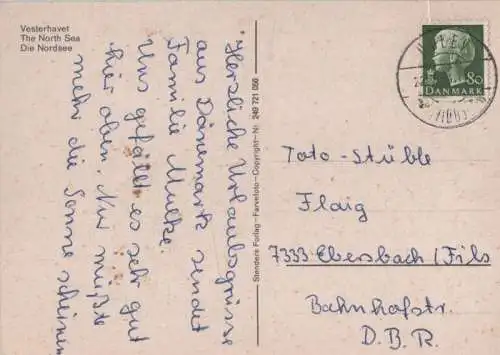 Vesterhavet
The North Sea
Die Nordsee
Herzliche Urlaubsgrüsse
aus Dänemark sendet
Familie Mulke.
Uns gefällt es sehr gut
hier oben. Nur müßte
mehr die Sonne scheinen
Stenders Forlag – Farvefoto – Copyright – Nr. 249 721 050
80
DANMARK
Toto-Stüble
Flaig
7333 Ebersbach/Fils
Bahnhofstr.
D.B.R.